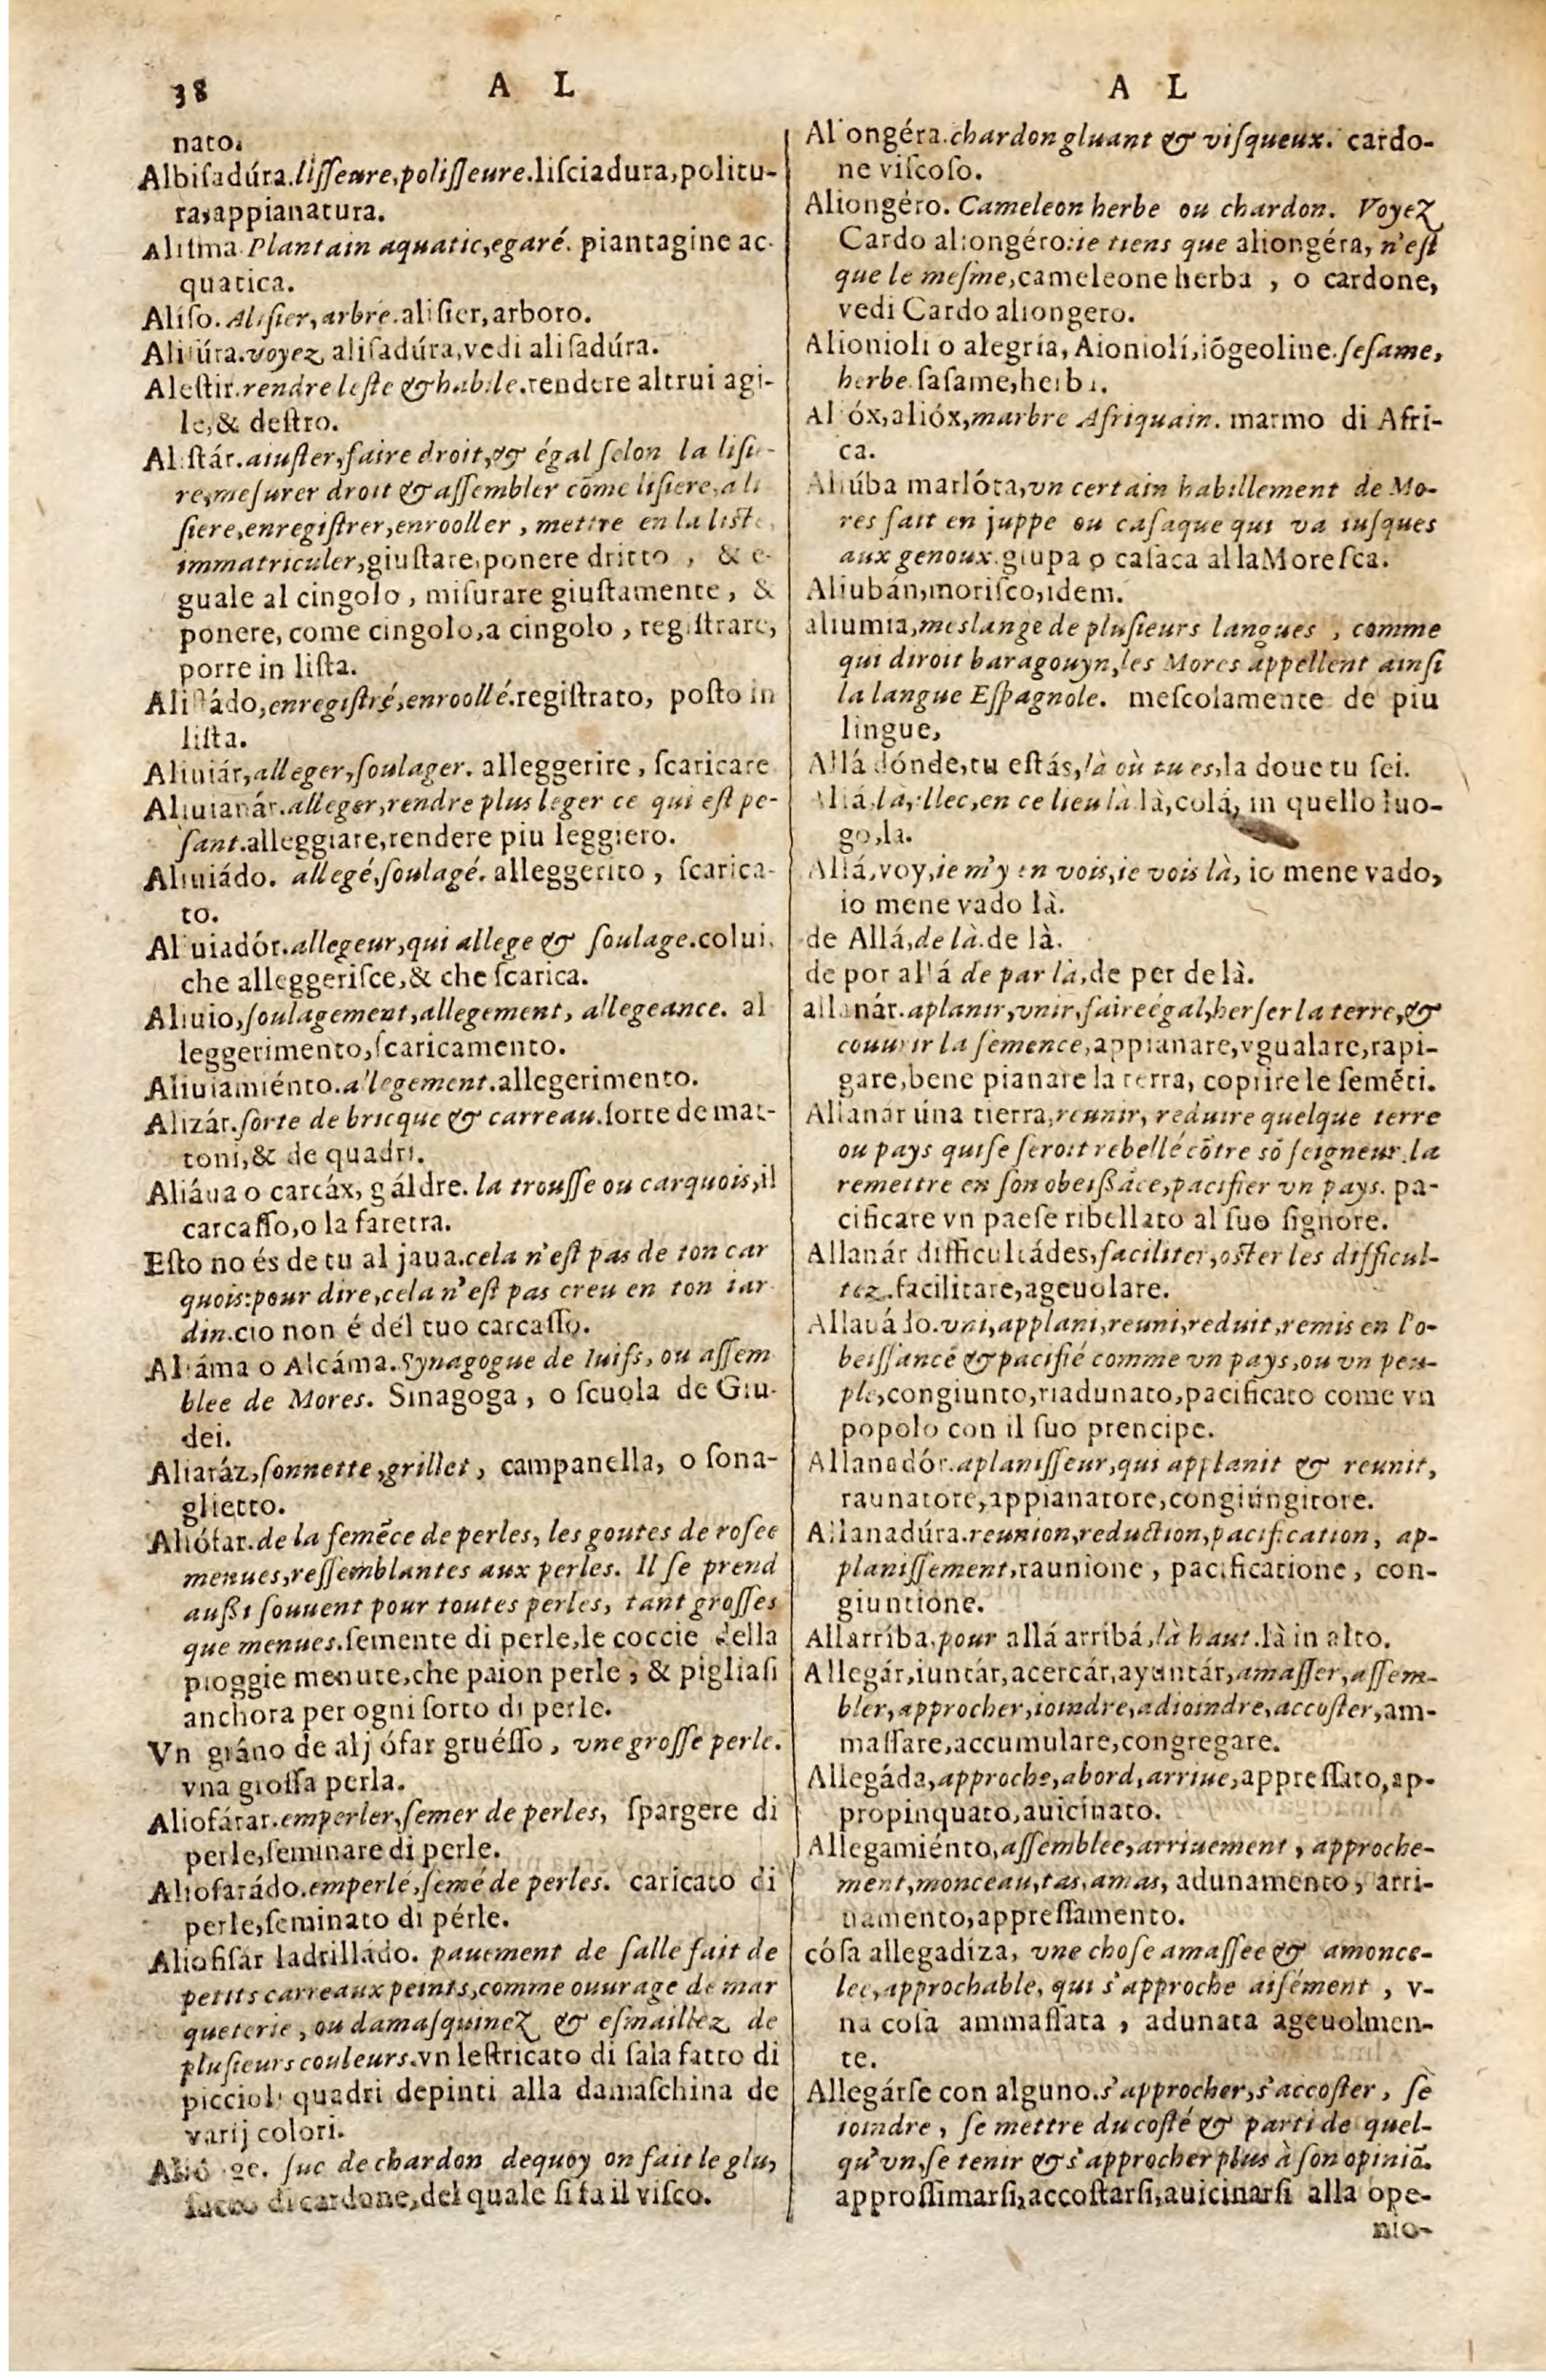 38 A L
nato.
Albiſadúra.liſſeure,poliſſeure.liſciadura,politu-
ra,appianatura.
Aliſma.Plantain aquatic,egaré. piantagine ac-
quatica.
Aliſo.Aliſier,arbre.aliſier,arboro.
Aliſúra.voyez aliſadúra,vedi aliſadúra.
Aleſtir.rendre leſte & habile.rendere altrui agi-
le,& deſtro.
Aliſtár.aiuſter,faire droit,& égal ſelon la liſie-
re,meſurer droit & aſſembler cõme liſiere,a li
ſiere,enregiſtrer,enrooller , mettre en la liſte,
immatriculer,giuſtare,ponere dritto , & e-
guale al cingolo , miſurare giuſtamente , &
ponere, come cingolo,a cingolo , regiſtrare,
porre in liſta.
Aliſtádo,enregiſtré,enroollé.regiſtrato, poſto in
liſta.
Aliuiár,alleger,ſoulager. alleggerire , ſcaricare
Aliuianár.alleger,rendre plus leger ce qui eſt pe-
ſant.alleggiare,rendere piu leggiero.
Aliuiádo. allegé,ſoulagé. alleggerito , ſcarica-
to.
Aliuiadór.allegeur,qui allege & ſoulage.colui,
che alleggeriſce,& che ſcarica.
Aliuio,ſoulagement,allegement, allegeance. al
leggerimento,ſcaricamento.
Aliuiamiénto.allegement.allegerimento.
Alizár.ſorte de bricque & carreau.ſorte de mat-
toni,& de quadri.
Aliáua o carcáx, gáldre. la trouſſe ou carquois,il
carcaſſo,o la faretra.
Eſto no és de tu al jaua.cela n'eſt pas de ton car
quois:pour dire,cela n'eſt pas creu en ton iar
din.cio non é del tuo carcaſſo.
Aliáma o Alcáma.Synagogue de Iuifs, ou aſſem
blee de Mores. Sinagoga , o ſcuola de Giu-
dei.
Aliaráz,ſonnette,grillet, campanella, o ſona-
glietto.
Aliófar.de la ſemẽce de perles, les goutes de roſee
menues,reſſemblantes aux perles. Il ſe prend
auſſi ſouuent pour toutes perles, tant groſſes
que menues.ſemente di perle,le coccie della
pioggie menute,che paion perle , & pigliaſi
anchora per ogni ſorto di perle.
Vn gráno de alj ófar gruéſſo , vne groſſe perle.
vna groſſa perla.
Aliofárar.emperler,ſemer de perles, ſpargere di
perle,ſeminare di perle.
Aliofarádo.emperlé,ſemé de perles. caricato di
perle,ſeminato di pérle.
Aliofiſár ladrilládo. pauement de ſalle fait de
petits carreaux peints,comme ouurage de mar
queterie , ou damaſquinez & eſmaillez de
pluſieurs couleurs.vn leſtricato di ſala fatto di
piccioli quadri depinti alla damaſchina de
varij colori.
ſuc de chardon dequoy on fait le glu,
ſucco di cardone,del quale ſi fa il viſco.
A L
Aliongéra.chardon gluant & viſqueux. cardo-
ne viſcoſo.
Aliongéro. Cameleon herbe ou chardon. Voyez
Cardo aliongéro:ie tiens que aliongéra, n'eſt
que le meſme,cameleone herba , o cardone,
vedi Cardo aliongero.
Alionioli o alegría, Aioniolí,iõgeoline.ſeſame,
herbe.ſaſame,herba.
Alióx,alióx,marbre Afriquain. marmo di Afri-
ca.
Aliúba marlóta,vn certain habillement de Mo-
res fait en juppe ou caſaque qui va iuſques
aux genoux.giupa o caſaca alla Moreſca.
Aliubán,moriſco,idem.
aliumia,meslange de pluſieurs langues , comme
qui diroit baragouyn,les Mores appellent ainſi
la langue Eſpagnole. meſcolamente de piu
lingue,
Allá dónde,tu eſtás,là où tu es,la doue tu ſei.
Allá,là,illec,en ce lieu là.là,colá, in quello luo-
go,la.
Allá,voy,ie m'y en vois,ie vois là, io mene vado,
io mene vado là.
de Allá,de là.de là.
de por allá de par là,de per de là.
allanár.aplanir,vnir,faire égal,herſer la terre,&
couurir la ſemence,appianare,vgualare,rapi-
gare,bene pianare la terra, coprire le ſemẽti.
Allanár úna tierra,reunir, reduire quelque terre
ou pays qui ſe ſeroit rebellé cõtre sõ ſeigneur,la
remettre en ſon obeiſſãce,pacifier vn pays. pa-
cificare vn paeſe ribellato al ſuo ſignore.
Allanár difficultádes,faciliter,oſter les difficul-
tez.facilitare,ageuolare.
Allauádo.vni,applani,reuni,reduit,remis en l'o-
beiſſancé & pacifié comme vn pays,ou vn peu-
ple,congiunto,riadunato,pacificato come vn
popolo con il ſuo prencipe.
Allanadór.aplaniſſeur,qui applanit & reunit,
raunatore,appianatore,congiúngitore.
Allanadúra.reunion,reduction,pacification, ap-
planiſſement,raunione , pacificatione, con-
giuntione.
Allarríba,pour allá arribá,là haut.là in alto.
Allegár,iuntár,acercár,ayuntár,amaſſer,aſſem-
bler,approcher,ioindre,adioindre,accoſter,am-
maſſare,accumulare,congregare.
Allegáda,approche,abord,arriue,appreſſato,ap-
propinquato,auicinato.
Allegamiénto,aſſemblee,arriuement , approche-
ment,monceau,tas,amas, adunamento, arri-
uamento,appreſſamento.
cóſa allegadíza, vne choſe amaſſee & amonce-
lee,approchable, qui s'approche aiſément , v-
na coſa ammaſſata , adunata ageuolmen-
te.
Allegárſe con alguno.s'approcher,s'accoſter, ſe
ioindre , ſe mettre du coſté & parti de quel-
qu'vn,ſe tenir & s'approcher plus à ſon opiniõ.
approſſimarſi,accoſtarſi,auicinarſi alla ope-
nio-